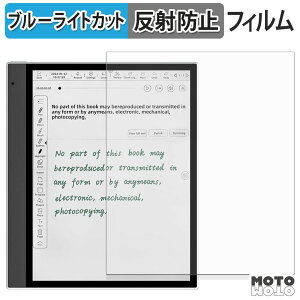 ブルーライトカット 反射防止 フィルム
No part of this book may bereproduced or transmitted in
any form or by anymeans, electronic, mechanical,
photocopying,
No part of this book may
bereproduced or transmitted in
any form or by anymeans,
electronic, mechanical,
photocopying.
MOTO
MOTO